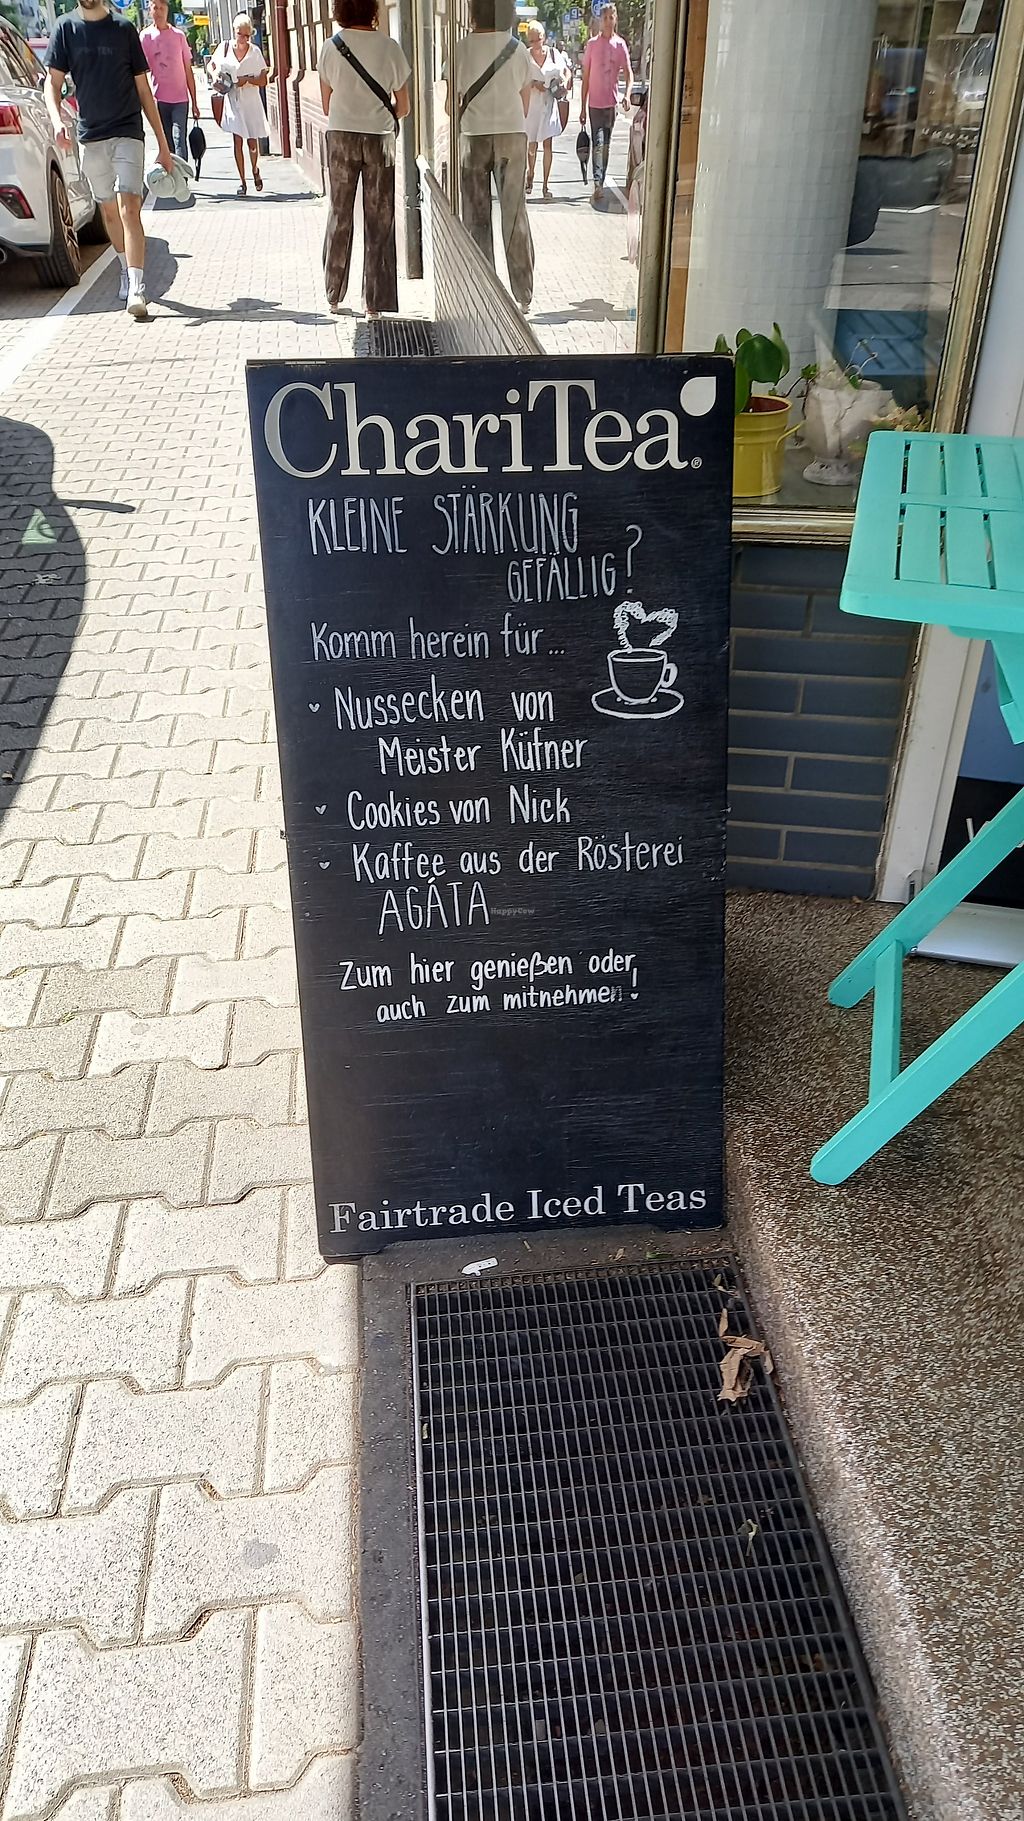 ChariTea®
KLEINE STÄRKUNG
GEFÄLLIG?
Komm herein für...
Nussecken von
Meister Küfner
Cookies von Nick
Kaffee aus der Rösterei
AGÁTA
HappyCow
Zum hier genießen oder
auch zum mitnehmen!
Fairtrade Iced Teas